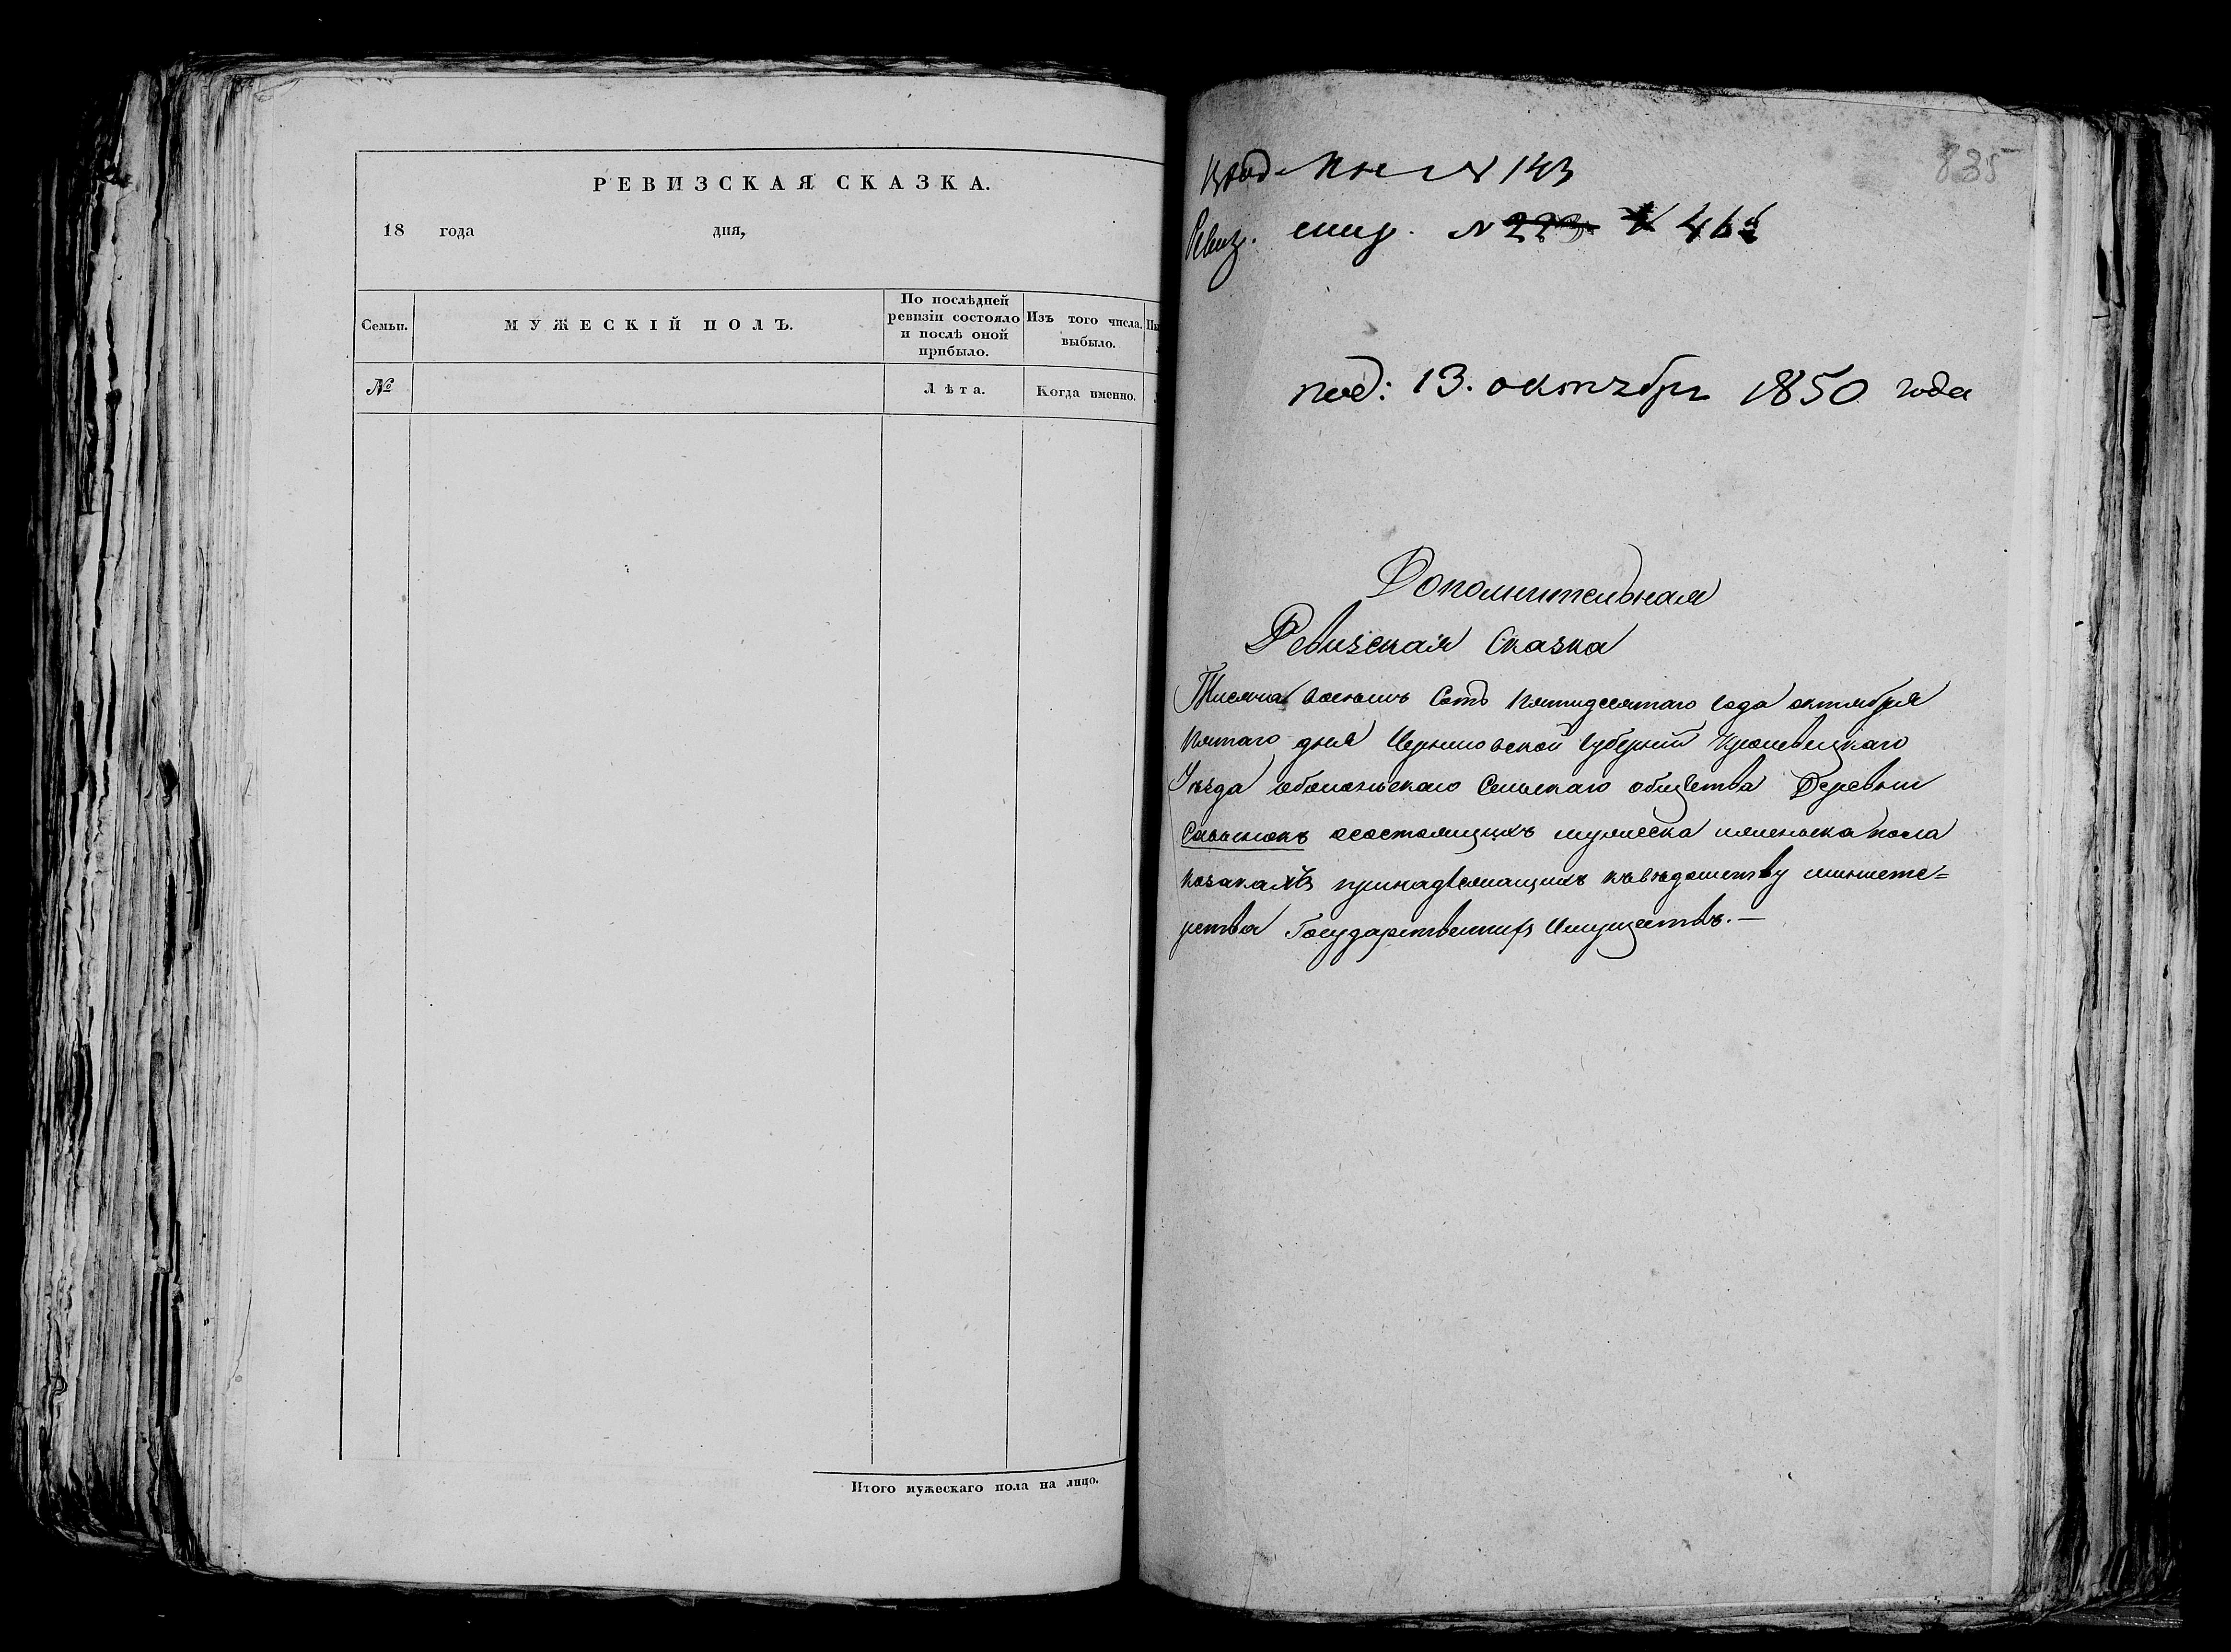 РЕВИЗСКАЯ СКАЗКА.
18 года дня,
Семьи.
МУЖЕСКІЙ ПОЛЪ.
По послѣдней
ревизіи состояло
и послѣ оной
прибыло.
Изъ того числа
выбыло.
№
Лѣта.
Когда именно.
Итого мужескаго пола на лицо.
835
№ 143
Ревиз. № 223 46
под: 13. октября 1850 года
Дополнительная
Ревизская Сказка
Тисяча восемъ Сотъ Пятидесятаго года октября
пятаго дня Черниговской губерніи Кролевецкаго
Уезда Сельскаго общества Деревни
осостоящихъ мужеска иженьска пола
козакахъ принадлежащихъ къвѣдомству министе=
рства Государственнихъ Имуществъ.—